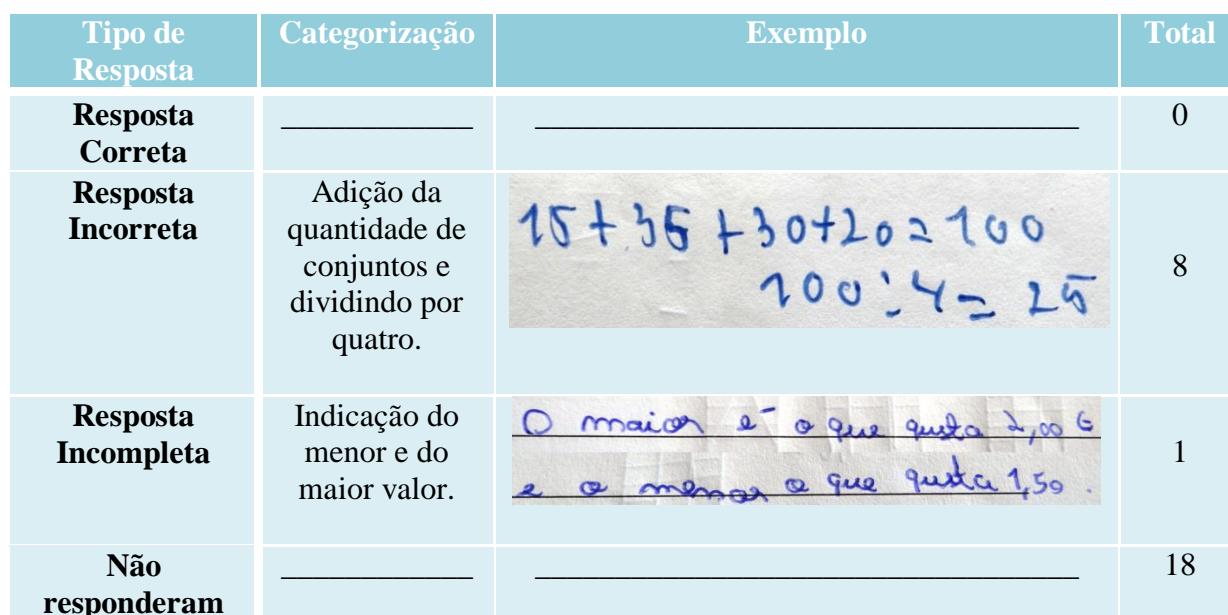 Tipo de Resposta Categorização Exemplo Total
Resposta Correta ____________ __________________________________ 0
Resposta Incorreta
Adição da
quantidade de
conjuntos e
dividindo por
quatro.
15+35+30+20=100
100:4=25
8
Resposta Incompleta
Indicação do
menor e do
maior valor.
O maior é o que qusta 2,00 €
e o menor o que qusta 1,50.
1
Não responderam ____________ __________________________________ 18